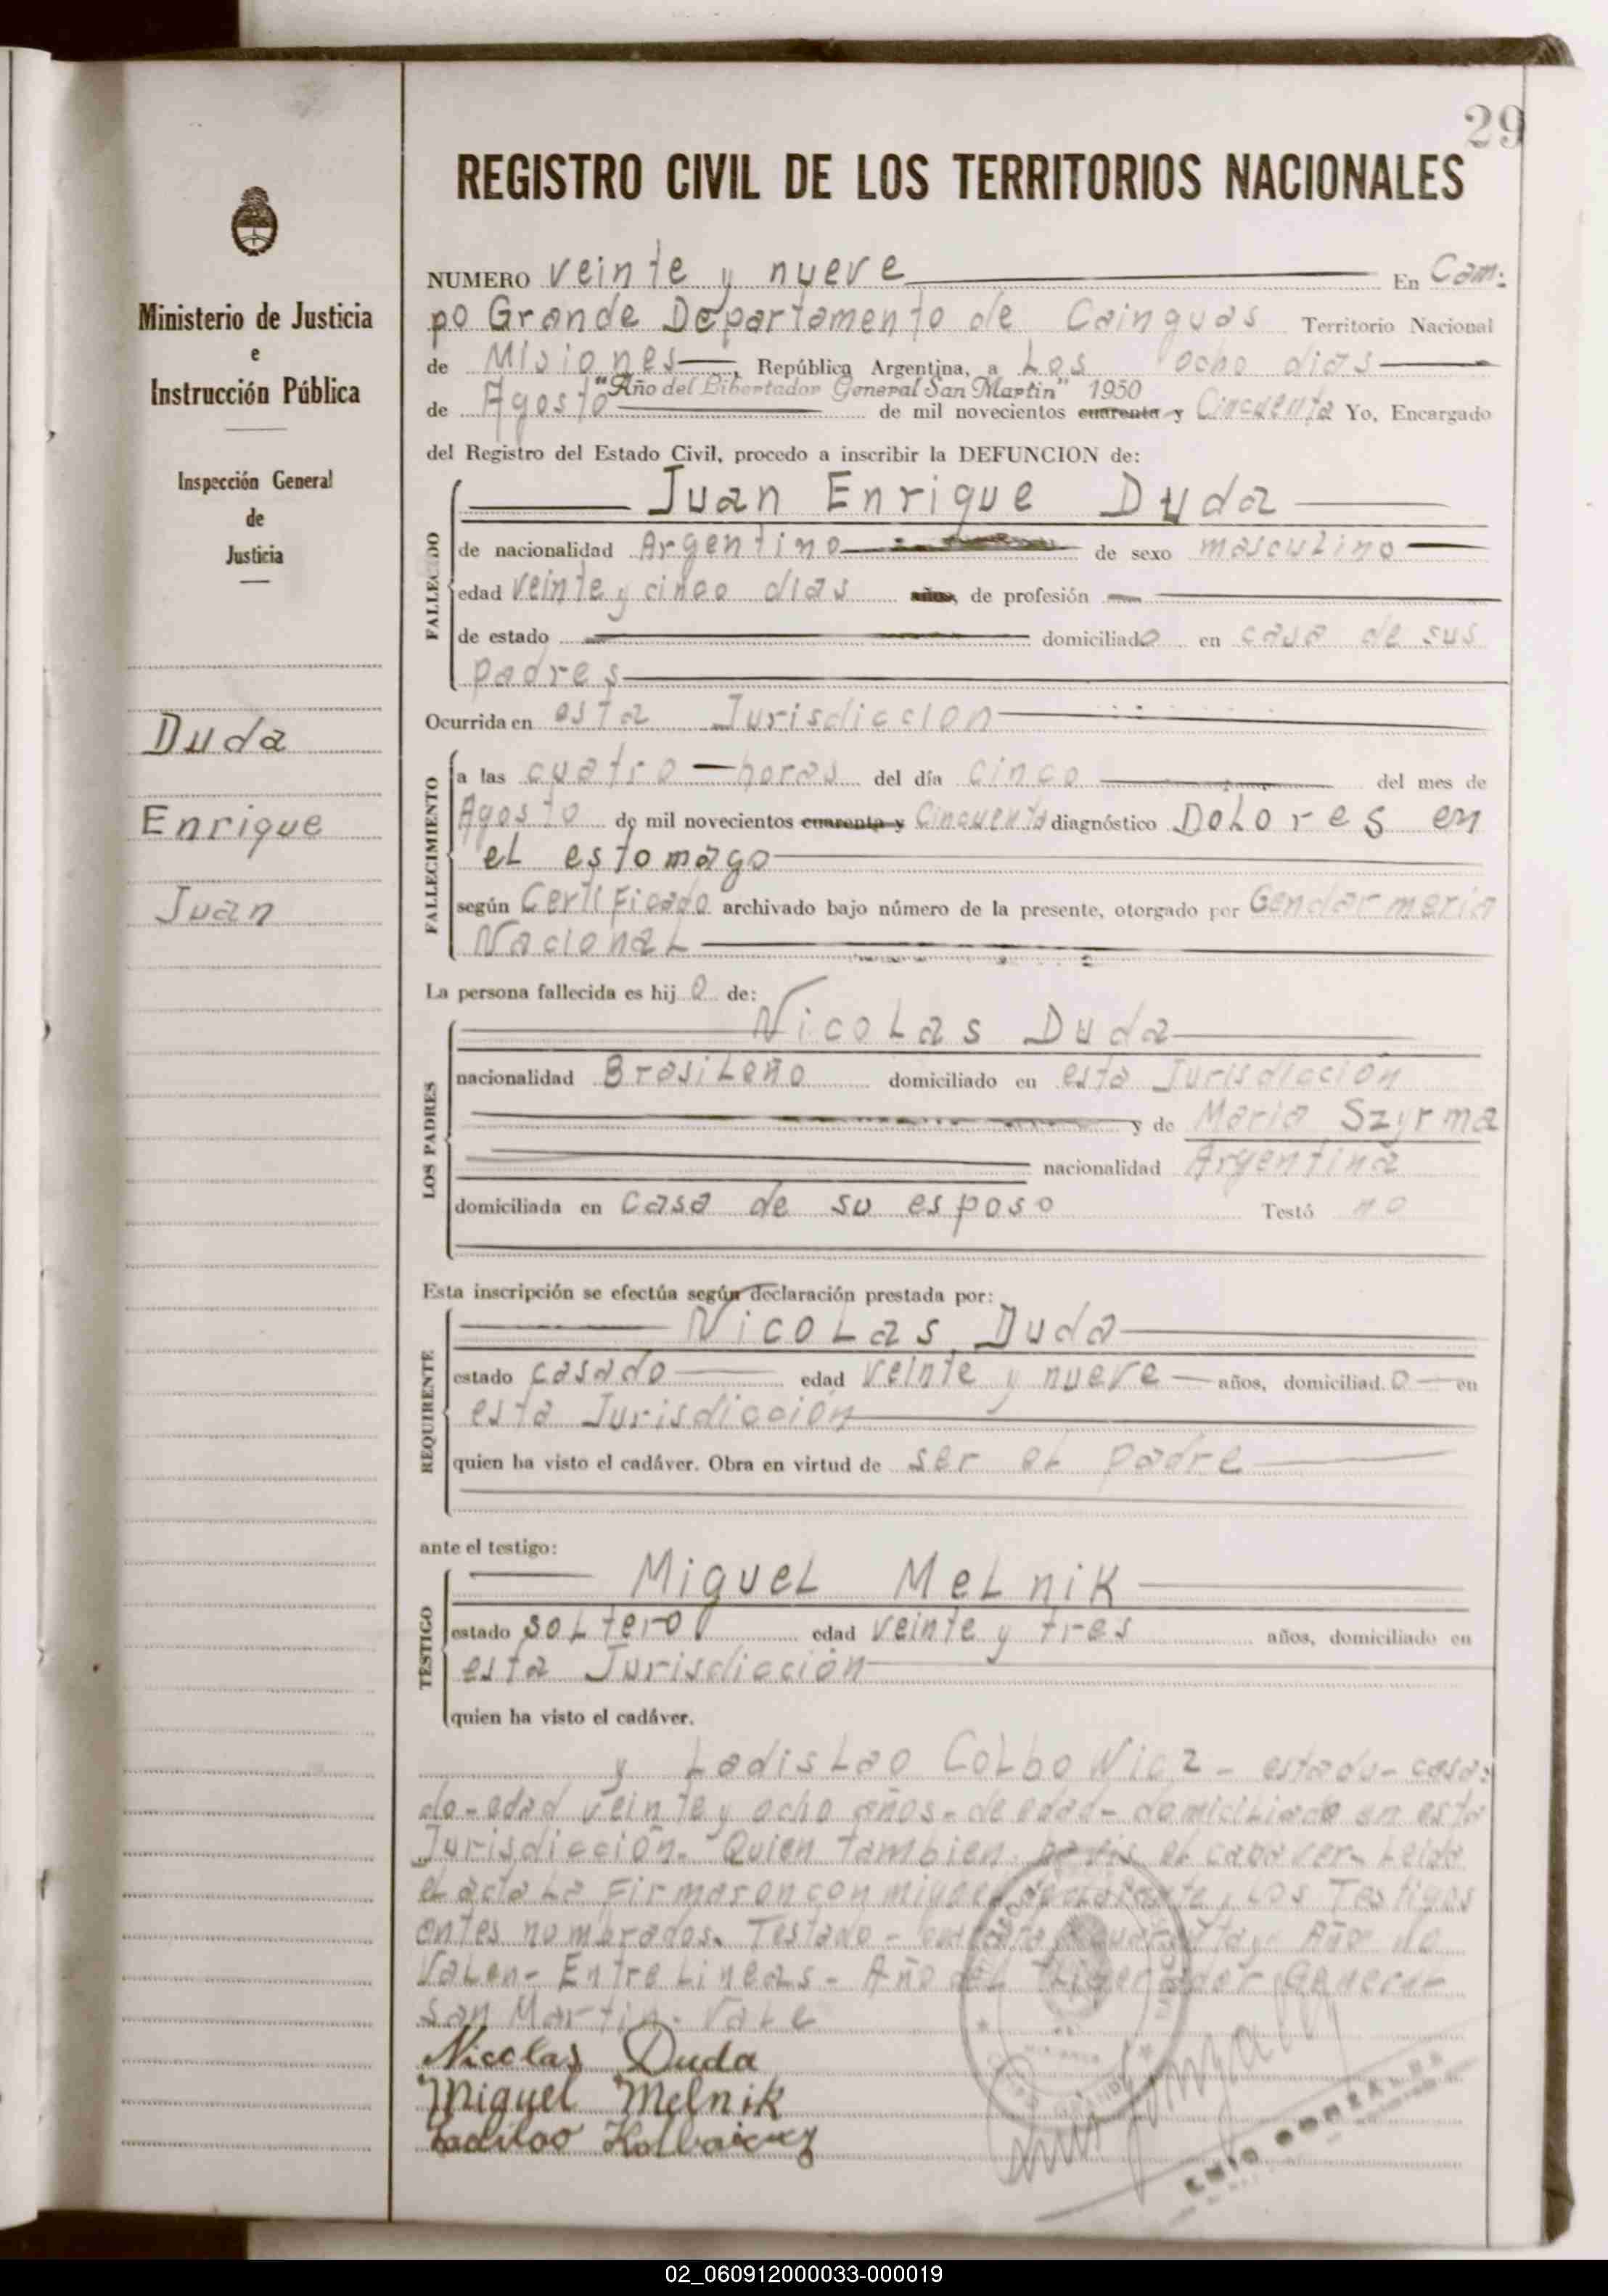 29
REGISTRO CIVIL DE LOS TERRITORIOS NACIONALES
Ministerio de Justicia
e
Instrucción Pública
Inspección General
de
Justicia
Duda
Enrique
Juan
NUMERO veinte y nueve En Cam:
po Grande Departamento de Cainguas Territorio Nacional
de Misiones, República Argentina, a Los ocho dias
"Año del Libertador General San Martin" 1950
de Agosto de mil novecientos cuarenta y Cincuenta Yo, Encargado
del Registro del Estado Civil, procedo a inscribir la DEFUNCION de:
FALLECIDO
Juan Enrique Duda
de nacionalidad Argentino de sexo masculino
edad veinte y cinco dias años, de profesión
de estado domiciliado en casa de sus
padres
Ocurrida en esta Jurisdiccion
FALLECIMIENTO
a las cuatro horas del día cinco del mes de
Agosto de mil novecientos cuarenta y Cincuenta diagnóstico Dolores en
el estomago
según Certificado archivado bajo número de la presente, otorgado por Gendarmeria
Nacional
La persona fallecida es hijo de:
LOS PADRES
Nicolas Duda
nacionalidad Brasileño domiciliado en esta Jurisdicción
y de Maria Szyrma
nacionalidad Argentina
domiciliada en casa de su esposo Testó no
Esta inscripción se efectúa según declaración prestada por:
REQUIRENTE
Nicolas Duda
estado casado edad veinte y nueve años, domiciliado en
esta Jurisdicción
quien ha visto el cadáver. Obra en virtud de ser el padre
ante el testigo:
TESTIGO
Miguel Melnik
estado soltero edad veinte y tres años, domiciliado en
esta Jurisdicción
quien ha visto el cadáver.
y Ladislao Colbowicz - estado - casa:
do - edad veinte y ocho años - de edad - domiciliado en esta
Jurisdicción. Quien tambien el cadaver - Leida
el acta La Firmaron conmigo Los Testigos
antes nombrados. Testado - cuarenta y Año no
Valen - Entre Lineas - Año del Libertador General
San Martin. Vale
Nicolas Duda
Miguel Melnik
Ladislao Kolbowicz
LUIS GONZALEZ
02_060912000033-000019